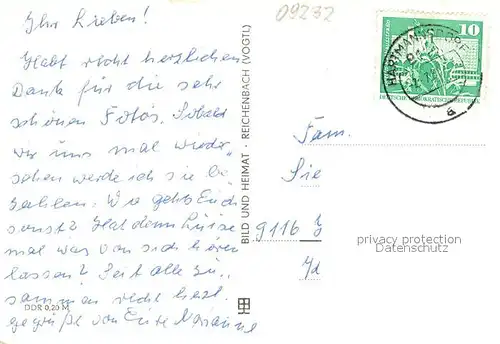 Ihr Lieben!
Habt recht herzlichen
Dank für die sehr
schönen Fotos. Sobald
wir uns mal wieder
sehen werde ich sie be-
zahlen. Wie gehts Euch
sonst? Hat denn Luise
mal was von sich hören
lassen? Seit alle zu-
sammen recht herzl.
gegrüßt von Eure Marianne
DDR 0,20 M
BILD UND HEIMAT · REICHENBACH (VOGTL)
09232
10
DEUTSCHE DEMOKRATISCHE REPUBLIK
HARTMANNSDORF
a
Fam.
Sie
9116
privacy protection
Datenschutz